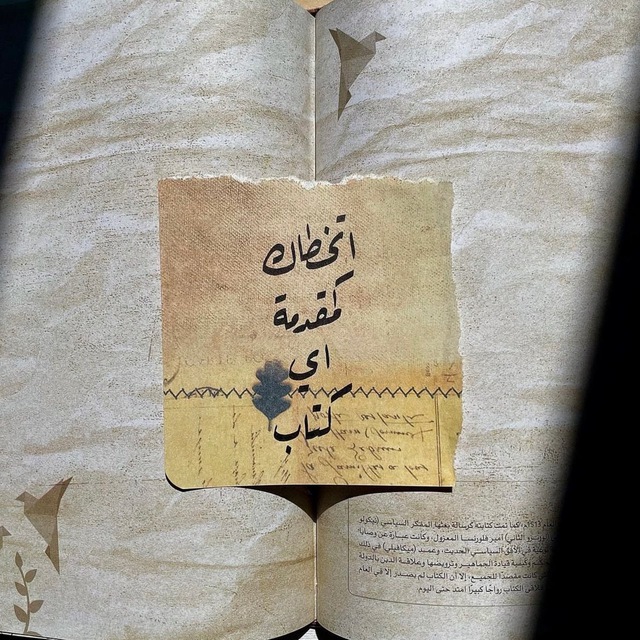 اتخطاك
كمقدمة
اي
كتاب
1513م، كما تمت كتابته كرسالة بعثها المفكر السياسي (نيكولو
الثاني) أمير فلورنسا المعزول، وكانت عبارة عن وصايا
في الأفق السياسي الحديث، وعمد (ميكافيلي) في ذلك
وكيفية قيادة الجماهير وترويضها وعلاقة الدين بالدولة
كانت مقصدًا للجميع، إلا أن الكتاب لم يصدر إلا في العام
لاقى الكتاب رواجًا كبيرًا امتد حتى اليوم.